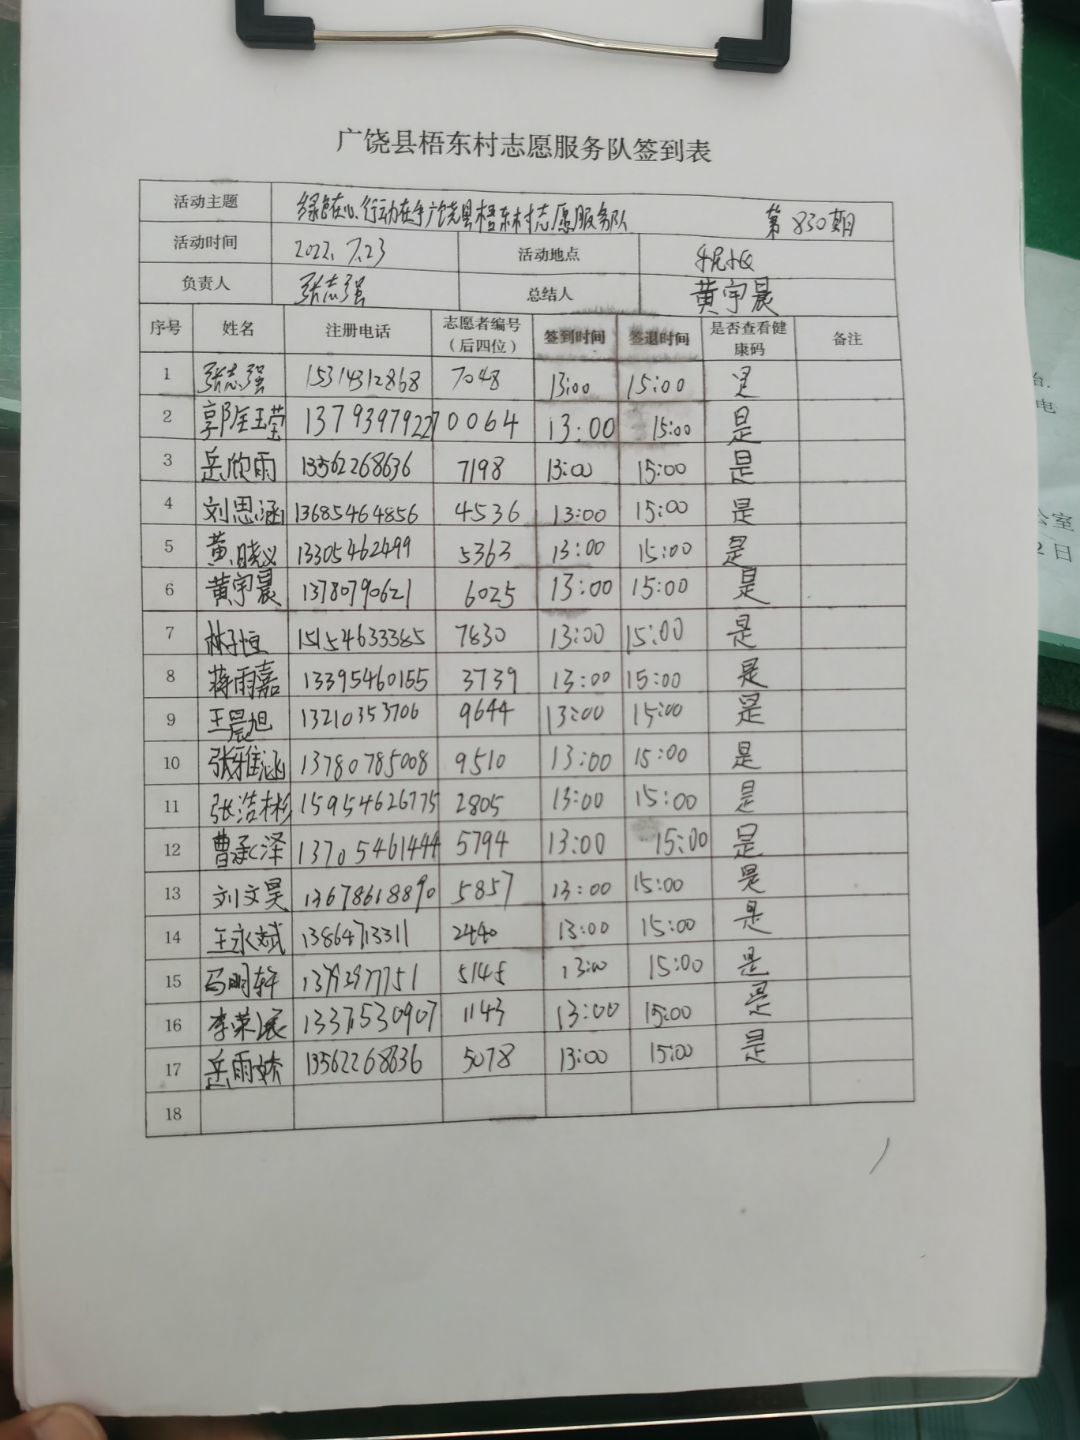 广饶县梧东村志愿服务队签到表
活动主题 绿色在心、行动在手广饶县梧东村志愿服务队 第830期
活动时间 2022.7.23 活动地点
负责人 张志强 总结人 黄宇晨
序号 姓名 注册电话 志愿者编号（后四位） 签到时间 签退时间 是否查看健康码 备注
1 张志强 15314312868 7048 13:00 15:00 是
2 郭钰莹 13793979227 0064 13:00 15:00 是
3 岳欣雨 13562268636 7198 13:00 15:00 是
4 刘思涵 13685464856 4536 13:00 15:00 是
5 黄晓义 13305462499 5363 13:00 15:00 是
6 黄宇晨 13780790621 6025 13:00 15:00 是
7 林子恒 15154633385 7830 13:00 15:00 是
8 蒋雨嘉 13395460155 3739 13:00 15:00 是
9 王晨旭 13210353706 9644 13:00 15:00 是
10 张雅涵 13780785008 9510 13:00 15:00 是
11 张浩彬 15954626775 2805 13:00 15:00 是
12 曹承泽 13705461444 5794 13:00 15:00 是
13 刘文昊 13678618890 5857 13:00 15:00 是
14 王永斌 13864713311 2440 13:00 15:00 是
15 马明轩 5145 13:00 15:00 是
16 李荣展 13371530907 1143 13:00 15:00 是
17 岳雨娇 13562268636 5078 13:00 15:00 是
18
台.
电
公室
2日